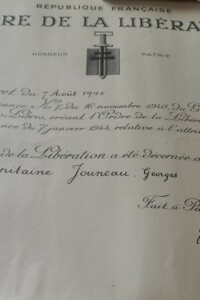 RÉPUBLIQUE FRANÇAISE
RE DE LA LIBÉRAT
HONNEUR PATRIE
ret du 7 Août 1945
ance N° 7, du 16 novembre 1940, du G
Libres, créant l'Ordre de la Libéra
nce du 7 janvier 1944 relative à l'attri
de la Libération a été décernée a
pitaine Jouneau, Georges
Fait à Pa